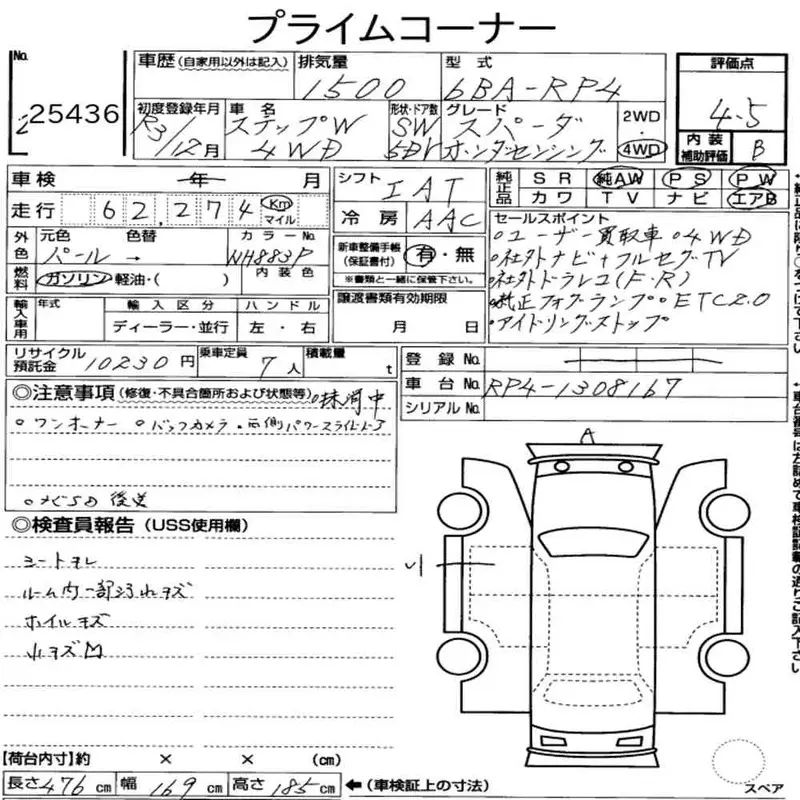 プライムコーナー
No. 25436
車歴 (自家用以外は記入)
排気量 1500
型式 6BA-RP4
評価点 4.5
初度登録年月 R3/12月
車名 ステップW 4WD
形状・ドア数 SW 5Dr
グレード スパーダ ホンダセンシング
2WD・4WD
内装補助評価 B
車検 年 月
走行 62,274 Km マイル
シフト IAT
冷房 AAC
純正品 SR 純AW PS PW
カワ TV ナビ エアB
外色 元色 パール → 色替 カラーNo. NH883P
内装色
燃料 ガソリン 軽油・( )
新車整備手帳(保証書付) 有・無
※書類と一緒に保管下さい。
セールスポイント
○ユーザー買取車 ○4WD
○社外ナビ+フルセグTV
○社外ドラレコ(F・R)
○純正フォグランプ ○ETC2.0
○アイドリングストップ
輸入車用 年式 輸入区分 ハンドル
ディーラー・並行 左・右
譲渡書類有効期限
月 日
リサイクル預託金 10230円
乗車定員 7人
積載量 t
登録No.
車台No. RP4-1308167
シリアルNo.
◎注意事項(修復・不具合箇所および状態等) ○抹消中
○ワンオーナー ○バックカメラ ○両側パワースライドドア
○ナビSD 後送
◎検査員報告(USS使用欄)
シートヨレ
ルーム内一部汚れキズ
ホイルキズ
小キズ
A
【荷台内寸】約 × × (cm)
長さ476cm 幅169cm 高さ185cm ←(車検証上の寸法)
スペア